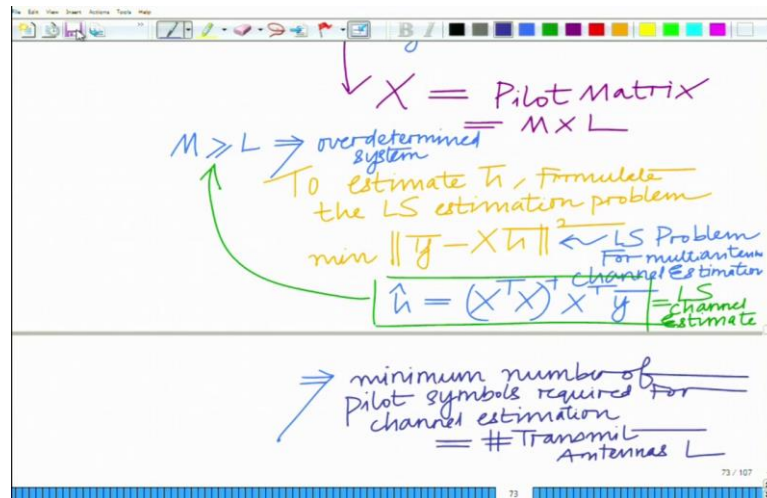 File Edit View Insert Actions Tools Help
B I
X = Pilot Matrix
= M X L
M ≥ L ⇒ overdetermined
system
To estimate h̄, Formulate
the LS estimation problem
min ‖ȳ - X h̄‖² ← LS Problem
For multiantenn
channel Estimation
ĥ = (XᵀX)⁻¹ Xᵀ ȳ = LS
channel
Estimate
⇒ minimum number of
Pilot symbols required For
channel estimation
= # Transmit
Antennas L
73 / 107
73